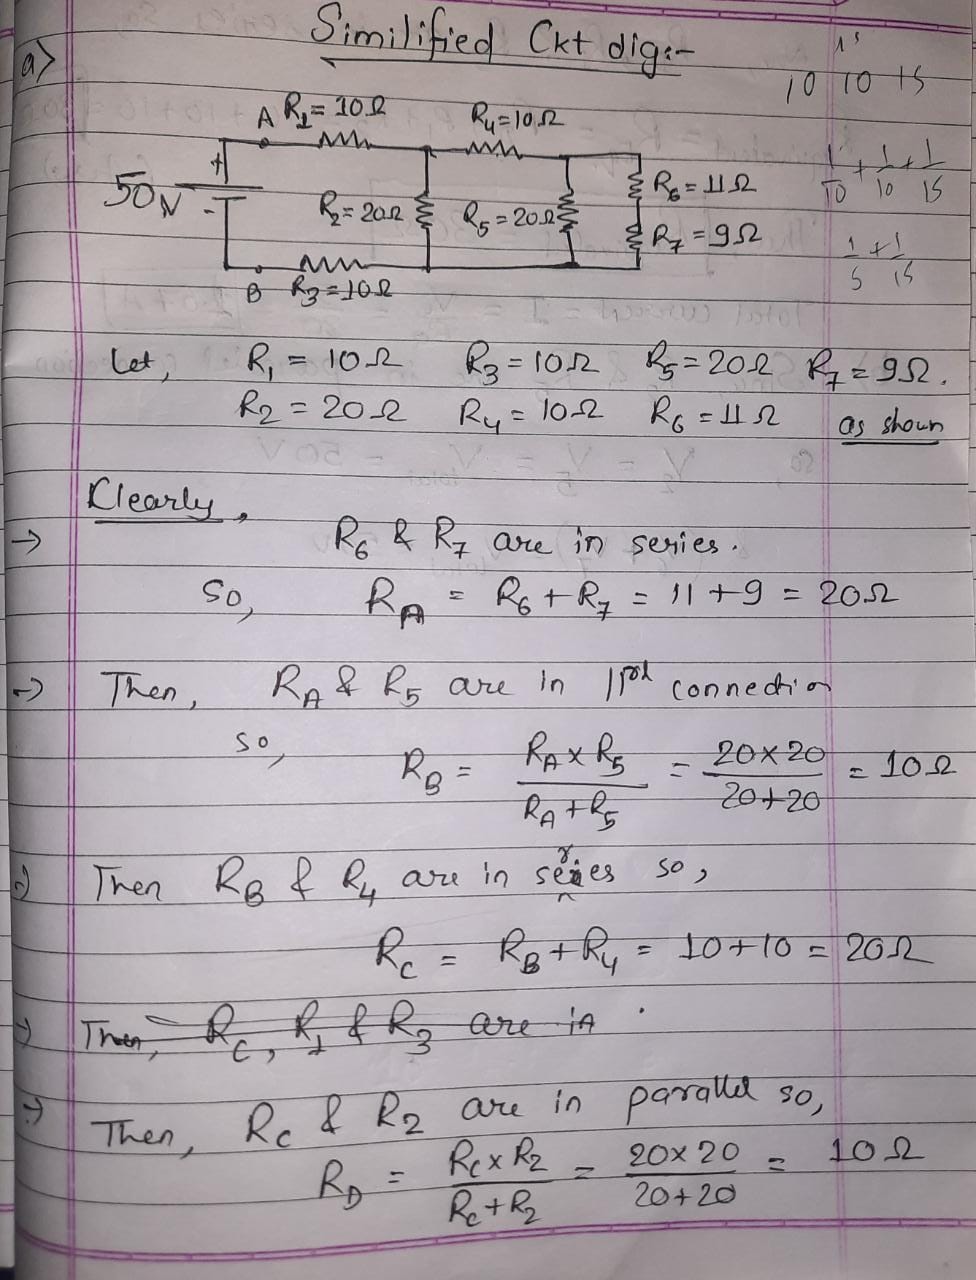 Similified Ckt dig:-
a)
15
10 10 15
A R1 = 10Ω R4 = 10Ω
1/10 + 1/10 + 1/15
+ R6 = 11Ω
50V
- R2 = 20Ω R5 = 20Ω R7 = 9Ω
1/5 + 1/15
B R3 = 10Ω
Let, R1 = 10Ω R3 = 10Ω R5 = 20Ω R7 = 9Ω.
R2 = 20Ω R4 = 10Ω R6 = 11Ω as shown
Clearly,
→ R6 & R7 are in series.
So, RA = R6 + R7 = 11 + 9 = 20Ω
→ Then, RA & R5 are in ||ral connection
so, RB = RA × R5 / RA + R5 = 20×20 / 20+20 = 10Ω
→ Then RB & R4 are in series so,
RC = RB + R4 = 10 + 10 = 20Ω
→ Then, RC, R1 & R3 are in
→ Then, RC & R2 are in parallel so,
RD = RC × R2 / RC + R2 = 20×20 / 20+20 = 10Ω